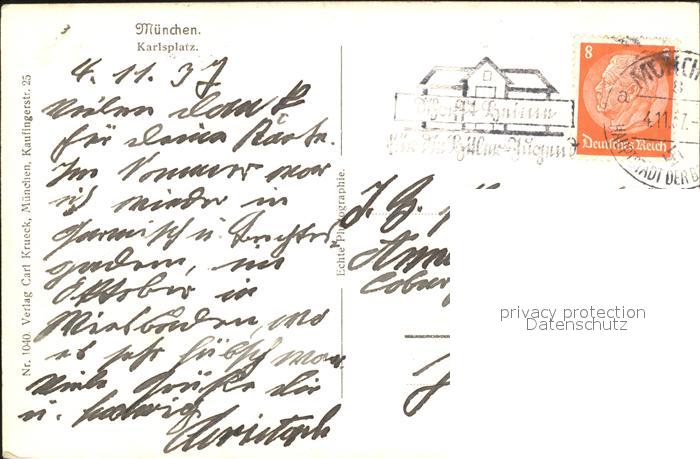 München.
Karlsplatz.
4. 11. 37
Vielen Dank
für Deine Karte.
Im Sommer war
ich wieder in
Garmisch u. Berchtes
gaden, im
Oktober in
Wiesbaden, wo
es sehr hübsch war.
Viele Grüße Dir
u. Ludwig
Christoph
Nr. 1040. Verlag Carl Krueck, München, Kaufingerstr. 25
Echte Photographie.
Schafft Heime
für die Hitler-Jugend
8
Deutsches Reich
MÜNCH
4.11.37
HAUPTSTADT DER B
Anna
Cobur
privacy protection
Datenschutz